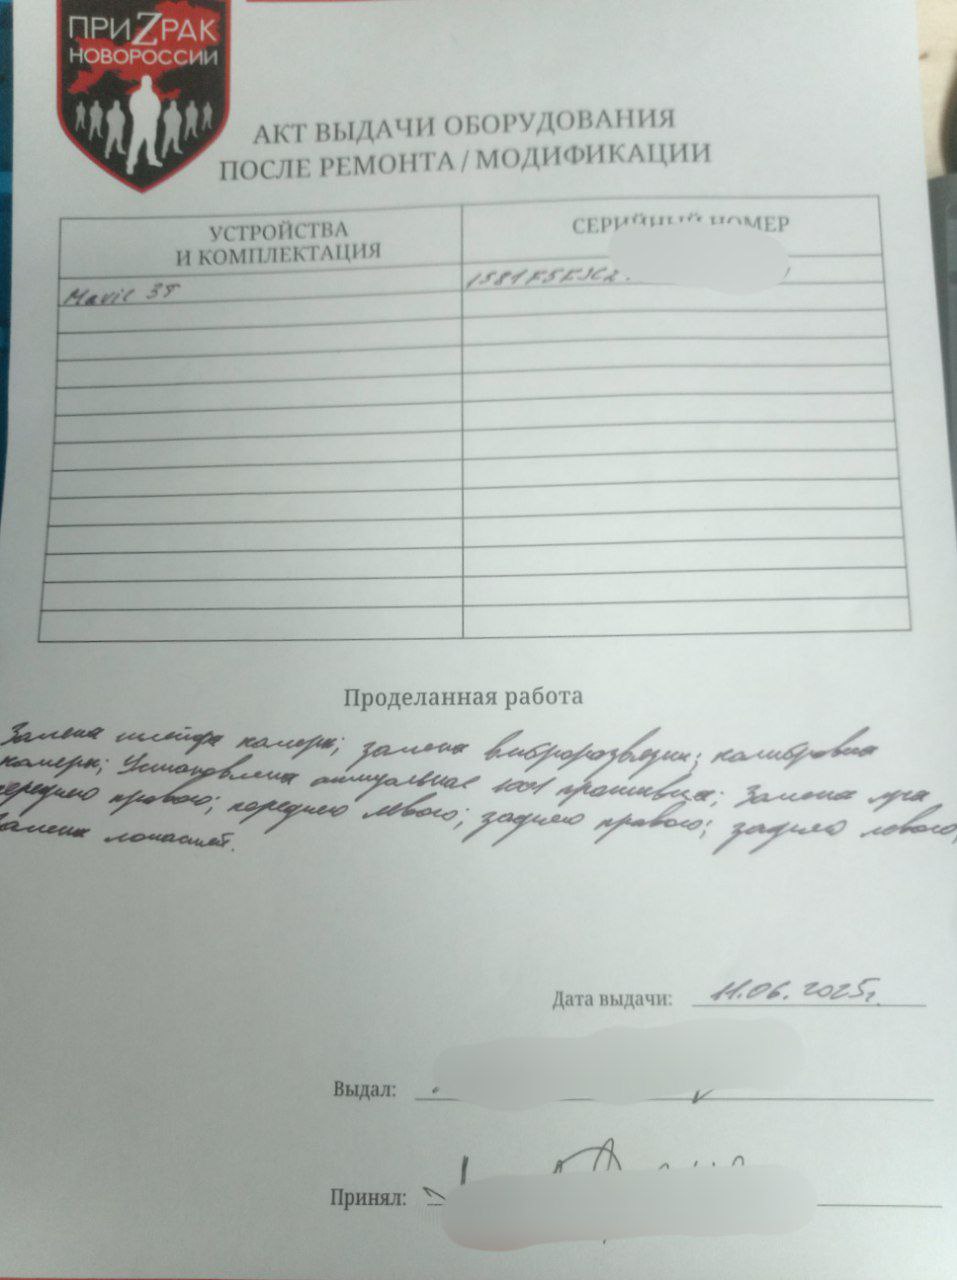 ПРИZРАК
НОВОРОССИИ
АКТ ВЫДАЧИ ОБОРУДОВАНИЯ
ПОСЛЕ РЕМОНТА / МОДИФИКАЦИИ
УСТРОЙСТВА
И КОМПЛЕКТАЦИЯ
СЕРИЙНЫЙ НОМЕР
Mavic 3T
1581F5FJC2
Проделанная работа
Замена шлейфа камеры; замена виброразвязки; калибровка
камеры; Установлена актуальная 1001 прошивка; Замена луча
переднего правого; переднего левого; заднего правого; заднего левого;
Замена лопастей.
Дата выдачи: 11.06.2025г.
Выдал:
Принял: